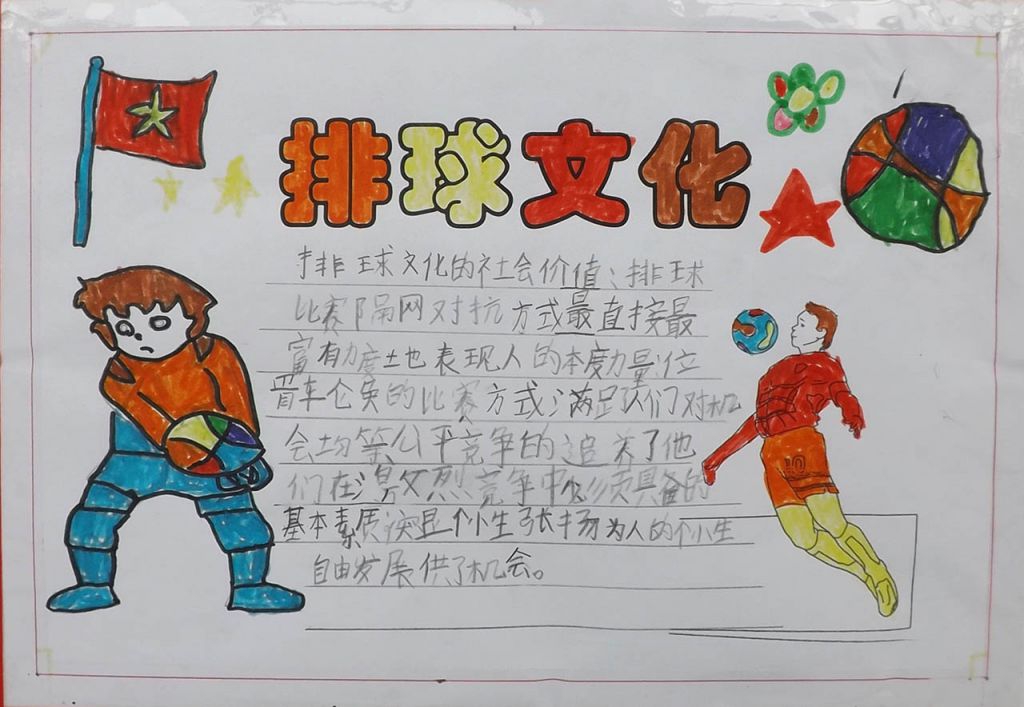 排球文化
排球文化的社会价值：排球
比赛隔网对抗方式最直接最
富有力度土也表现人的本度力量位
车仑奂的比赛方式满足队们对机
会均等公平竞争的追关了他
们在激烈竞争中必须具备的
基本素质突显个小生张扬为人的个小生
自由发展供了机会。
10